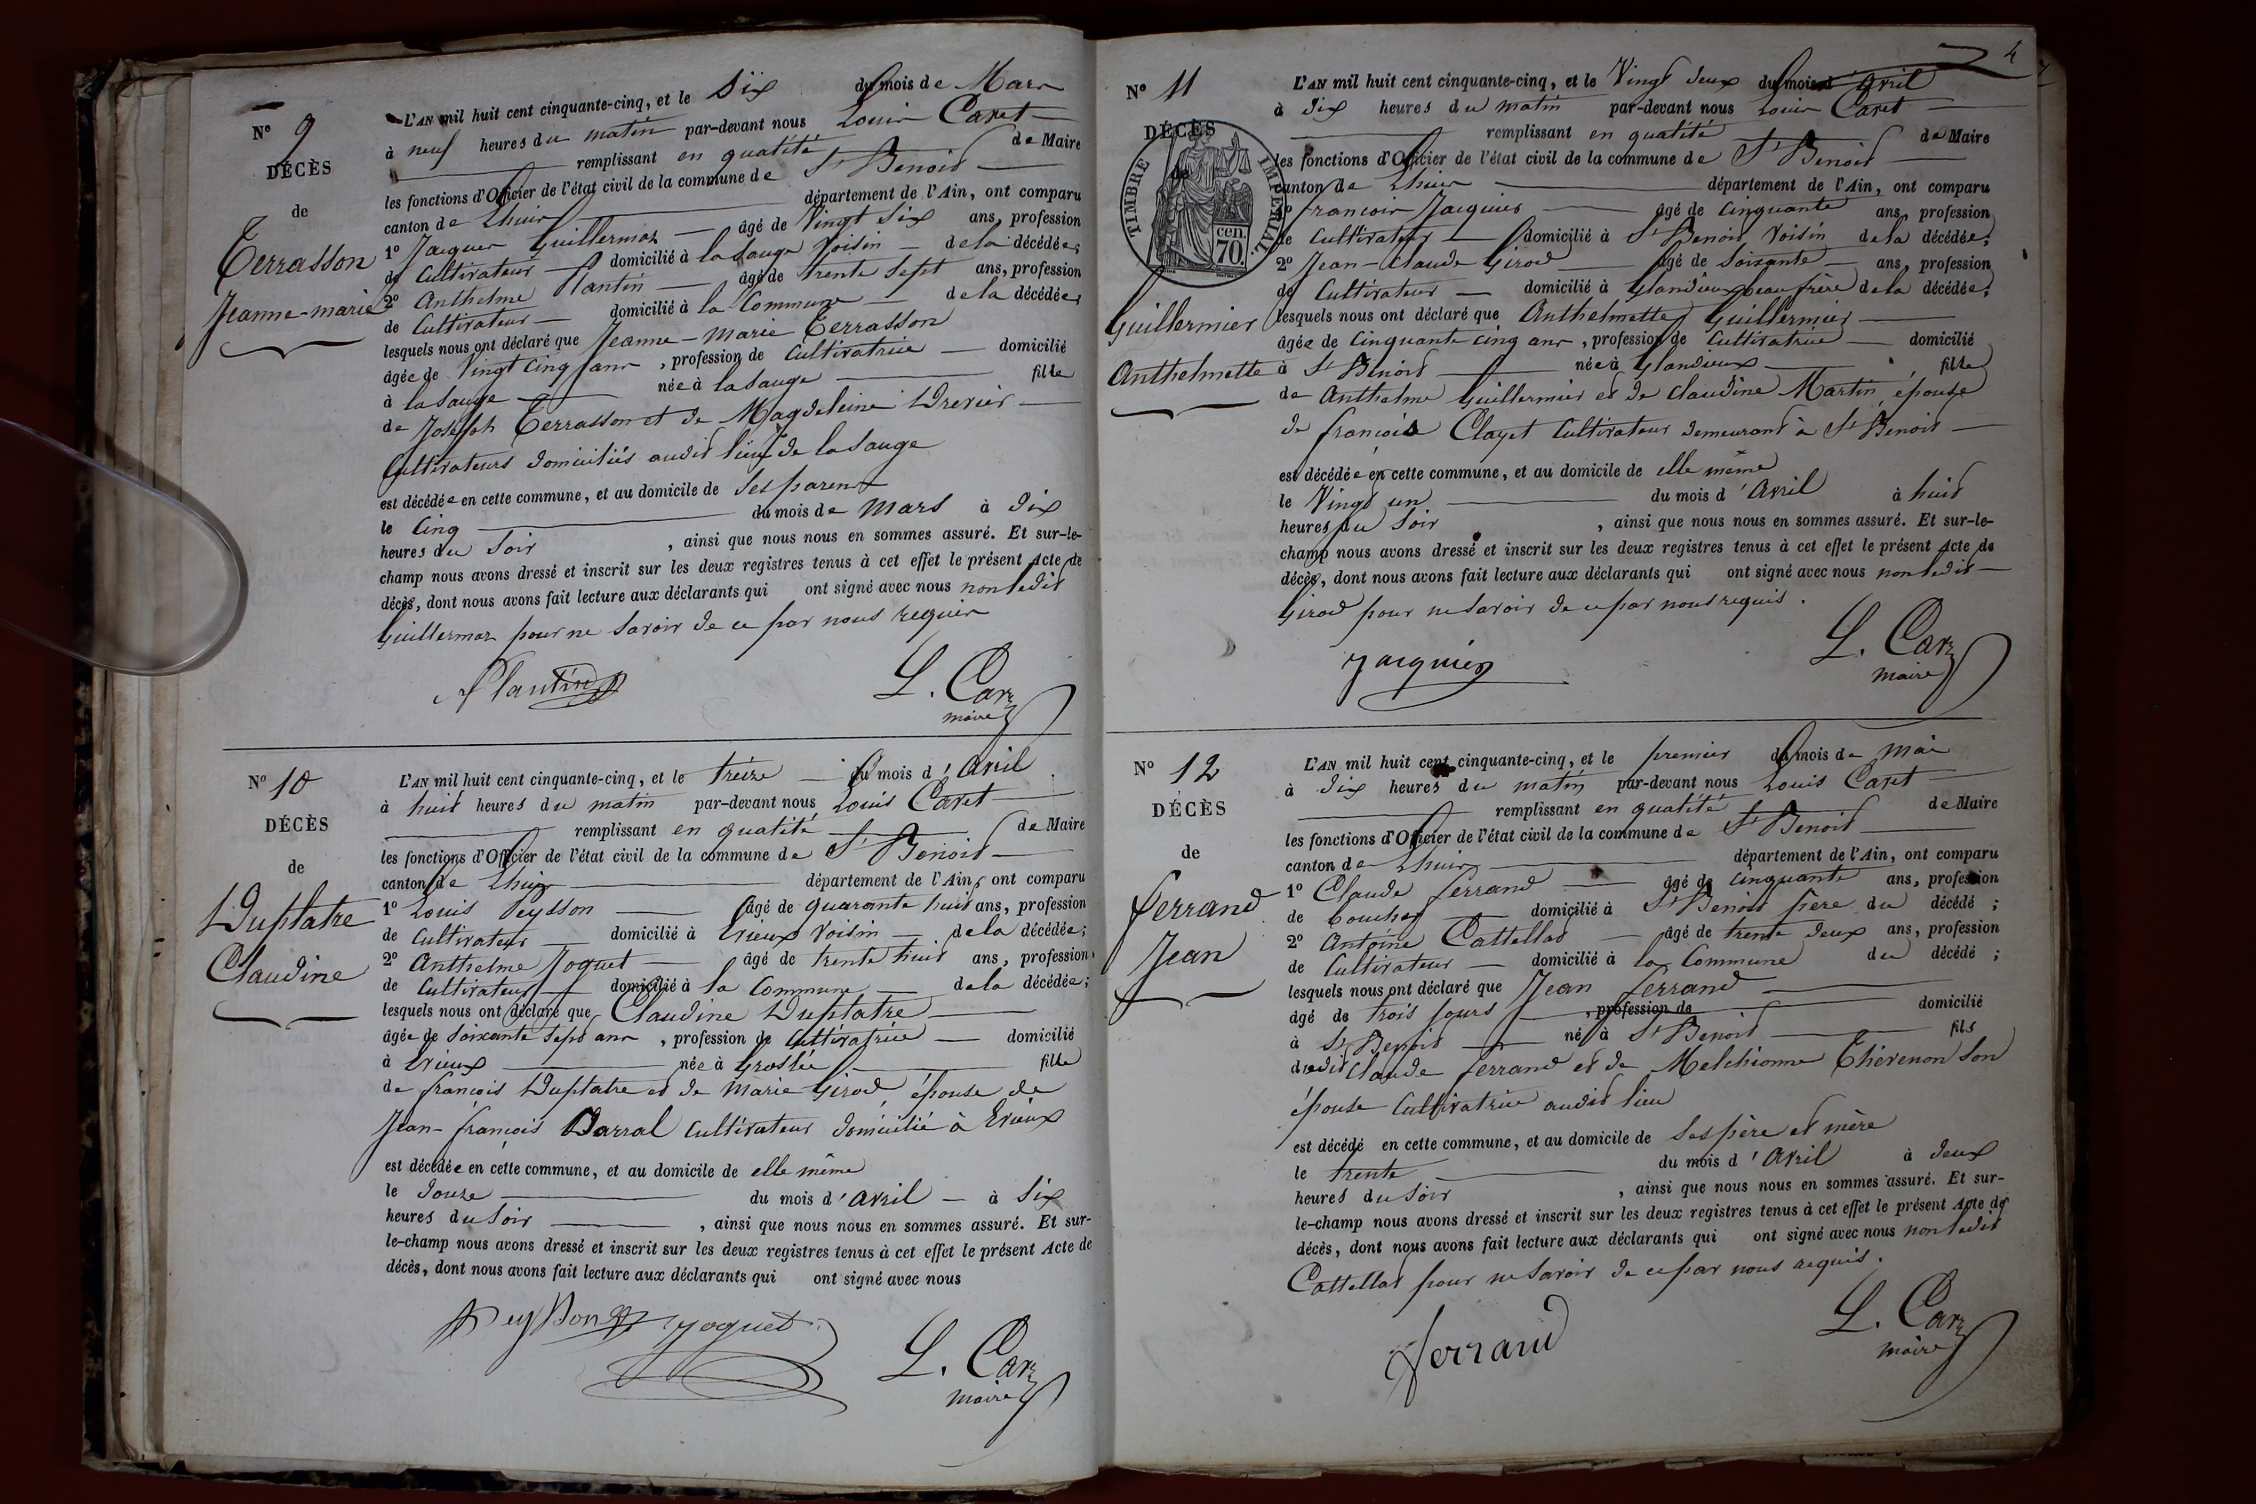 N° 9
DÉCÈS
de
Terrasson
Jeanne-marie
L'AN mil huit cent cinquante-cinq, et le Six du mois de Mars
à neuf heures du matin par-devant nous Louis Caret
remplissant en qualité de Maire
les fonctions d'Officier de l'état civil de la commune de St Benoit
canton de Lhuis département de l'Ain, ont comparu
1° Jacques Guillermoz âgé de Vingt Six ans, profession
de Cultivateur domicilié à la Sauge Voisin de la décédée;
2° Anthelme Plantin âgé de trente Sept ans, profession
de Cultivateur domicilié à la Commune de la décédée;
lesquels nous ont déclaré que Jeanne-Marie Terrasson
âgée de Vingt Cinq ans, profession de Cultivatrice domicilié
à la Sauge née à la Sauge fille
de Joseph Terrasson et de Magdeleine Drevier
Cultivateurs domiciliés audit lieu de la Sauge
est décédée en cette commune, et au domicile de Ses parens
le Cinq du mois de Mars à Dix
heures du Soir, ainsi que nous nous en sommes assuré. Et sur-le-
champ nous avons dressé et inscrit sur les deux registres tenus à cet effet le présent Acte de
décès, dont nous avons fait lecture aux déclarants qui ont signé avec nous non ledit
Guillermoz pour ne Savoir de ce par nous requis
Plantin
L. Car
maire
N° 10
DÉCÈS
de
Duplatre
Claudine
L'AN mil huit cent cinquante-cinq, et le treize du mois d'Avril
à huit heures du matin par-devant nous Louis Caret
remplissant en qualité de Maire
les fonctions d'Officier de l'état civil de la commune de St Benoit
canton de Lhuis département de l'Ain, ont comparu
1° Louis Peysson âgé de quarante huit ans, profession
de Cultivateur domicilié à Evieux Voisin de la décédée;
2° Anthelme Joguet âgé de trente huit ans, profession
de Cultivateur domicilié à la Commune de la décédée;
lesquels nous ont déclaré que Claudine Duplatre
âgée de Soixante Sept ans, profession de Cultivatrice domicilié
à Evieux née à Groslée fille
de françois Duplatre et de Marie Girod, épouse de
Jean-françois Barral Cultivateur domicilié à Evieux
est décédée en cette commune, et au domicile de elle même
le Douze du mois d'Avril à Six
heures du Soir, ainsi que nous nous en sommes assuré. Et sur-
le-champ nous avons dressé et inscrit sur les deux registres tenus à cet effet le présent Acte de
décès, dont nous avons fait lecture aux déclarants qui ont signé avec nous
Peysson Joguet
L. Car
maire
4
N° 11
DÉCÈS
de
TIMBRE IMPÉRIAL
cen.
70.
Guillermier
Anthelmette
L'AN mil huit cent cinquante-cinq, et le Vingt deux du mois d'Avril
à Dix heures du matin par-devant nous Louis Caret
remplissant en qualité de Maire
les fonctions d'Officier de l'état civil de la commune de St Benoit
canton de Lhuis département de l'Ain, ont comparu
1° francois Jacquier âgé de Cinquante ans, profession
de Cultivateur domicilié à St Benoit Voisin de la décédée;
2° Jean-Claude Girod âgé de Soixante ans, profession
de Cultivateur domicilié à Glandieux beau frère de la décédée;
lesquels nous ont déclaré que Anthelmette Guillermier
âgée de Cinquante Cinq ans, profession de Cultivatrice domicilié
à St Benoit née à Glandieux fille
de Anthelme Guillermier et de Claudine Martin, épouse
de françois Clayet Cultivateur demeurant à St Benoit
est décédée en cette commune, et au domicile de elle même
le Vingt un du mois d'Avril à huit
heures du Soir, ainsi que nous nous en sommes assuré. Et sur-le-
champ nous avons dressé et inscrit sur les deux registres tenus à cet effet le présent Acte de
décès, dont nous avons fait lecture aux déclarants qui ont signé avec nous non ledit
Girod pour ne Savoir de ce par nous requis.
Jacquier
L. Car
maire
N° 12
DÉCÈS
de
Ferrand
Jean
L'AN mil huit cent cinquante-cinq, et le premier du mois de Mai
à Dix heures du matin par-devant nous Louis Caret
remplissant en qualité de Maire
les fonctions d'Officier de l'état civil de la commune de St Benoit
canton de Lhuis département de l'Ain, ont comparu
1° Claude ferrand âgé de Cinquante ans, profession
de boucher domicilié à St Benoit père du décédé;
2° Antoine Cattellad âgé de trente deux ans, profession
de Cultivateur domicilié à la Commune du décédé;
lesquels nous ont déclaré que Jean ferrand
âgé de trois jours, profession de domicilié
à St Benoit né à St Benoit fils
dudit Claude ferrand et de Melchionne Thévenon Son
épouse Cultivatrice audit lieu
est décédé en cette commune, et au domicile de Ses père et mère
le trente du mois d'Avril à deux
heures du Soir, ainsi que nous nous en sommes assuré. Et sur-
le-champ nous avons dressé et inscrit sur les deux registres tenus à cet effet le présent Acte de
décès, dont nous avons fait lecture aux déclarants qui ont signé avec nous non ledit
Cattellad pour ne Savoir de ce par nous requis.
ferrand
L. Car
maire